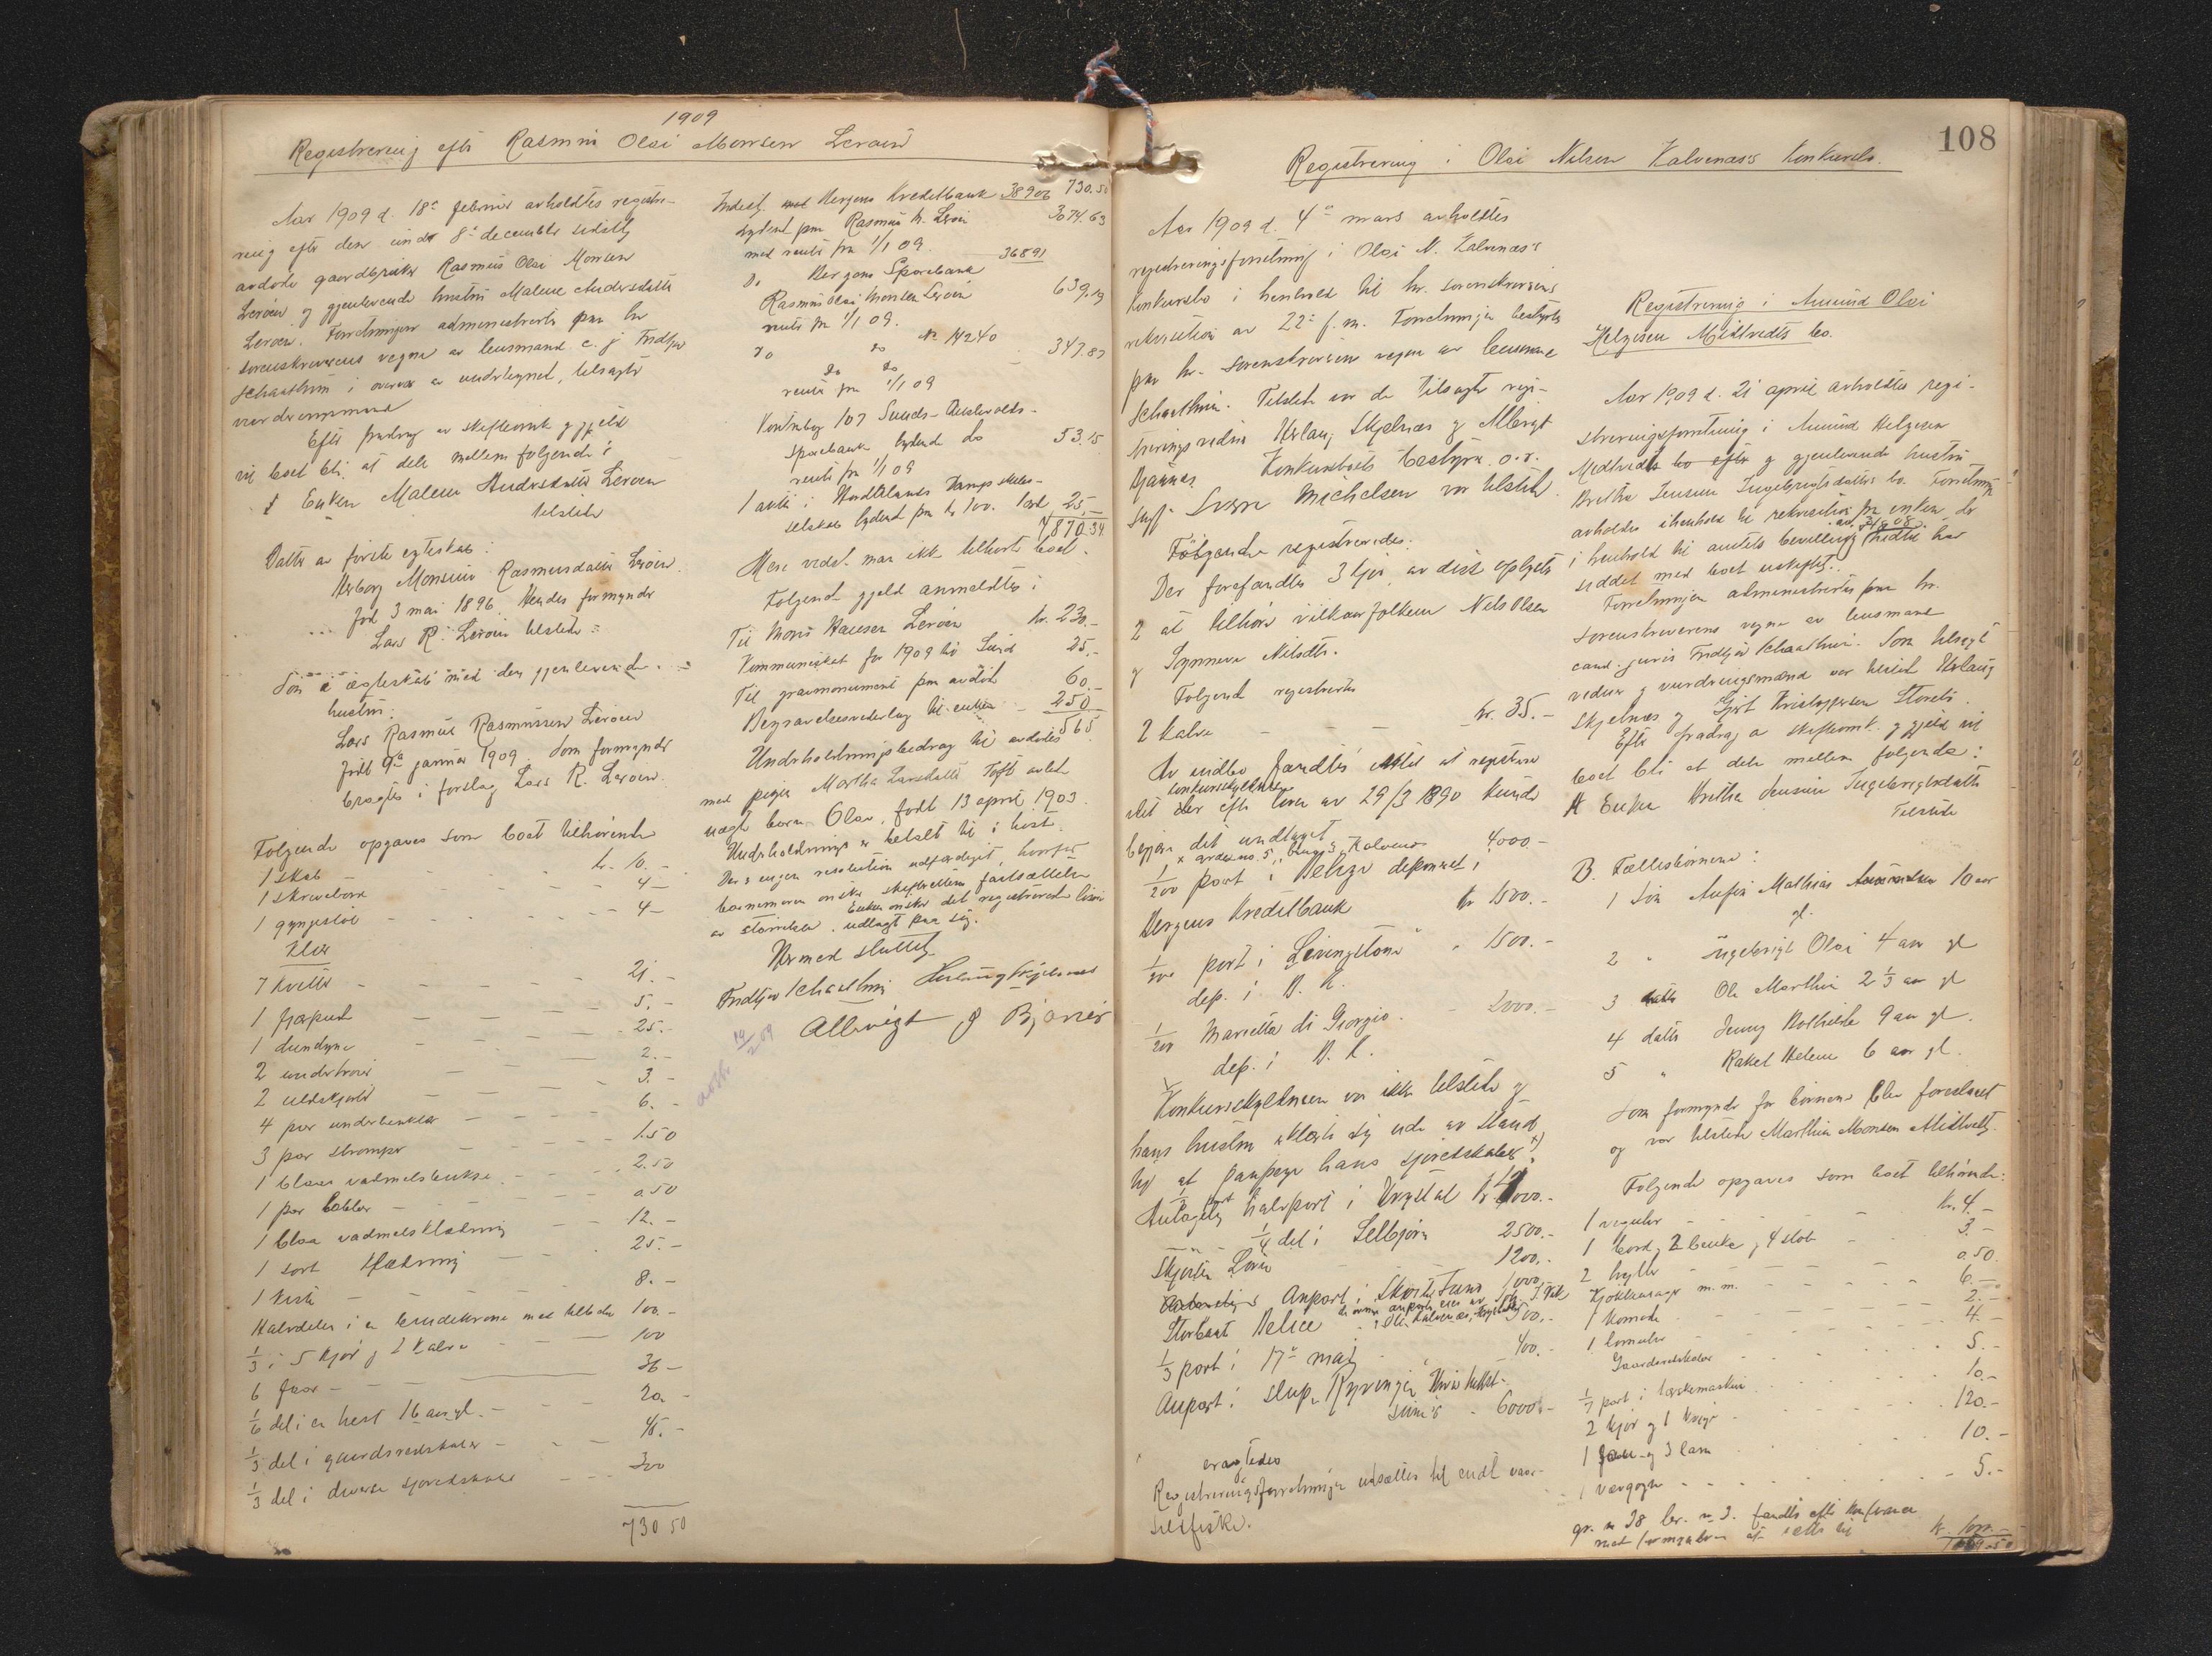 1909
Registrering efter Rasmus Olai Monsen Leroen
Aar 1909 d. 18de februar avholdtes registre-
ring efter den under 8de december sidstl.
avdøde gaardbruker Rasmus Olai Monsen
Leroen og gjenlevende hustru Malene Andersdatter
Leroen. Forretningen administrertes paa hr
sorenskriverens vegne av lensmand c. j. Fridtjov
Schaathun i overvær av undertegnet, tilsagte
vurderingsmænd
Efter fradrag av skifteomk. og gjeld
vil boet bli at dele mellem følgende:
Enken Malene Andersdatter Leroen
tilstede
Datter av første egteskab:
Herborg Monsine Rasmusdatter Leroen.
Fød 3 mai 1896. Hendes formynder
Lars R. Leroen tilstede.
Søn i egteskab med den gjenlevende
hustru:
Lars Rasmus Rasmussen Leroen
født 9de januar 1909. Som formynder
bragtes i forslag Lars R. Leroen.
Følgende opgaves som boet tilhørende
1 skab - - - kr. 10.-
1 skrivebord - - - 4-
1 gyngestol - - - 4-
Klær
7 kvitler - - - 21.-
1 - - - 5.-
1 dundyne - - - 25.-
2 undertrøier - - - 2.-
2 uldskjorter - - - 3.-
4 par underbenklær - - - 6.-
3 par strømper - - - 1.50
1 blaa vadmelsbukse - - - 2.50
1 par - - - 0.50
1 blaa vadmelsklædning - - 12.-
1 sort klædning - - 25.-
1 kiste - - - 8.-
Halvdelen i en brudekrone med tilbehør 100.-
1/3 i 5 kjør og 2 kalve - - 100
6 faar - - - 36-
1/6 del i en hest 16 aar gl. - - 20.-
1/3 del i gaardsredskaper - - 45.-
1/3 del i diverse sjøredskaper - - 300
730 50
Indest. Bergens Kreditbank 38906 730.50
lydende paa Rasmus M. Leroen 3074.63
med rente fra 1/1 09.
Do Bergens Sparebank 36891
Rasmus Olai Monsen Leroen 639.19
rente fra 1/1 09.
Do do No 14240
do do 347.87
rente fra 1/1 09
Kontrabog 107 Sunds-Austevolds-
sparebank lydende do 53.15
rente fra 1/1 09
1 aktie i Hordalands Dampskibs-
selskab lydende paa kr 100. 25.-
4870.34
Mere vidst. man ikke tilhørte boet.
Følgende gjeld anmeldtes:
Til Mons Hansen Leroen kr. 230.-
Kommuneskat for 1909 til Sund 25.-
Til gravmonument paa avdød 60.-
Begravelsesvederlag til enken 250
565
Underholdningsbidrag til avdødes
med pigen Martha Larsdatter Toft avlet
uegte barn Olav, født 13 april 1903.
Underholdningen er betalt til i høst.
Der er ingen resolution utfærdiget, hvorfor
barnemoren ønsker skifterettens fastsættelse
av størrelsen. Enken ønsker det registrerede løsøre
udlagt paa sig.
Hermed sluttet
Fridtjov Schaathun Herlaug Skjelnes
Albrigt J Bjånes
avskr. 19/2 09
108
Registrering i Olai Nilsen Kalvenæs's konkursbo.
Aar 1909 d. 4de mars avholdtes
registreringsforretning i Olai N. Kalvenæs's
konkursbo i henhold til hr. sorenskriverens
rekvisition av 22de f.m. Forretningen bestyrtes
paa hr. sorenskriverens vegne av lensmand
Schaathun. Tilstede var de tilsagte regi-
streringsvidner Herlaug Skjelnæs og Albrigt
Bjånes. Konkursboets bestyrer o.r.
sagf. Sverre Michelsen var tilstede.
Følgende registreredes:
Der forefandtes 3 kjør, av disse oplystes
2 at tilhøre vilkaarsfolkene Nils Olsen
og Synneva Nilsdtr.
Følgende registrertes
2 kalve - - - kr. 35.-
Av indbo fandtes intet at registrere
idet konkursskyldneren efter loven av 29/3 1890 kunde
begjære det undtaget
x 4000.-
1/200 part i Belize deponeret i
Bergens Kreditbank kr 1500.-
1/200 part i "Livingstone" " 1500.-
dep. i B. K.
1/200 Marietta di Giorgio - 2000.-
dep. i B. K.
Konkursskyldneren var ikke tilstede og
hans hustru erklærte sig ude av stand
til at paapege hans sjøredskaber x)
Antagelig halvpart i Krystal kr 4000.-
1/4 del i Selbjørn 2500.-
Skjøite Løve 1200.-
Anpart i Skøite Tuns 1000.-
Storbaat Delice - - 500.-
1/3 part i 17de mai - 400.-
Anpart i slup Ryvingen
- 6000.-
eragtedes
Registreringsforretningen utsættes til endt vaar-
sildfiske.
Registrering i Amund Olai
Helgesen Midtvedts bo.
Aar 1909 d. 21 april avholdtes regi-
streringsforretning i Amund Helgesen
Midtvedts bo efter og gjenlevende hustru
Brithe Jensine Ingebrigtsdatters bo. Forretningen
avholdes i henhold til rekvisition fra enken der
i henhold til amtets bevilling av 08 hidtil har
siddet med boet uskiftet.
Forretningen administrertes paa hr.
sorenskriverens vegne av lensmand
cand. juris Fridtjov Schaathun. Som tilsagt
vidner og vurderingsmænd var tilstede Herlaug
Skjelnæs og Gjert Kristoffersen Storebø.
Efter fradrag av skifteomk. og gjeld vil
boet bli at dele mellem følgende:
A Enken Brithe Jensine Ingebrigtsdatter
Tilstede
B. Fællesbørnene:
1 Søn Anfin Mathias 10 aar
gl.
2 " Ingebrigt Olai 4 aar gl
3 Ole Marthin 2 1/3 aar gl
4 datter Jenny Bothilde 9 aar gl.
5 " Rakel Helene 6 aar gl.
Som formynder for børnene blev foreslaaet
og var tilstede Marthin Monsen Midtvedt.
Følgende opgaves som boet tilhørende:
1 vægur - - - kr. 4.-
1 bord, 2 benke, 4 stole - - 3.-
2 hylder - - - 0.50
Kjøkkensager m.m. - - - 6.-
1 komode - - - 2.-
1 - - - 4.-
Gaardsredskaber - - - 5.-
1/7 part i tærskemaskin - - - 10.-
2 kjør og 1 kvige - - - 120.-
1 faar og 3 lam - - - 10.-
1 - - - 5.-
gr. no 38 br. no 3. fandtes efter konferance
med formynderen at sættes til kr.